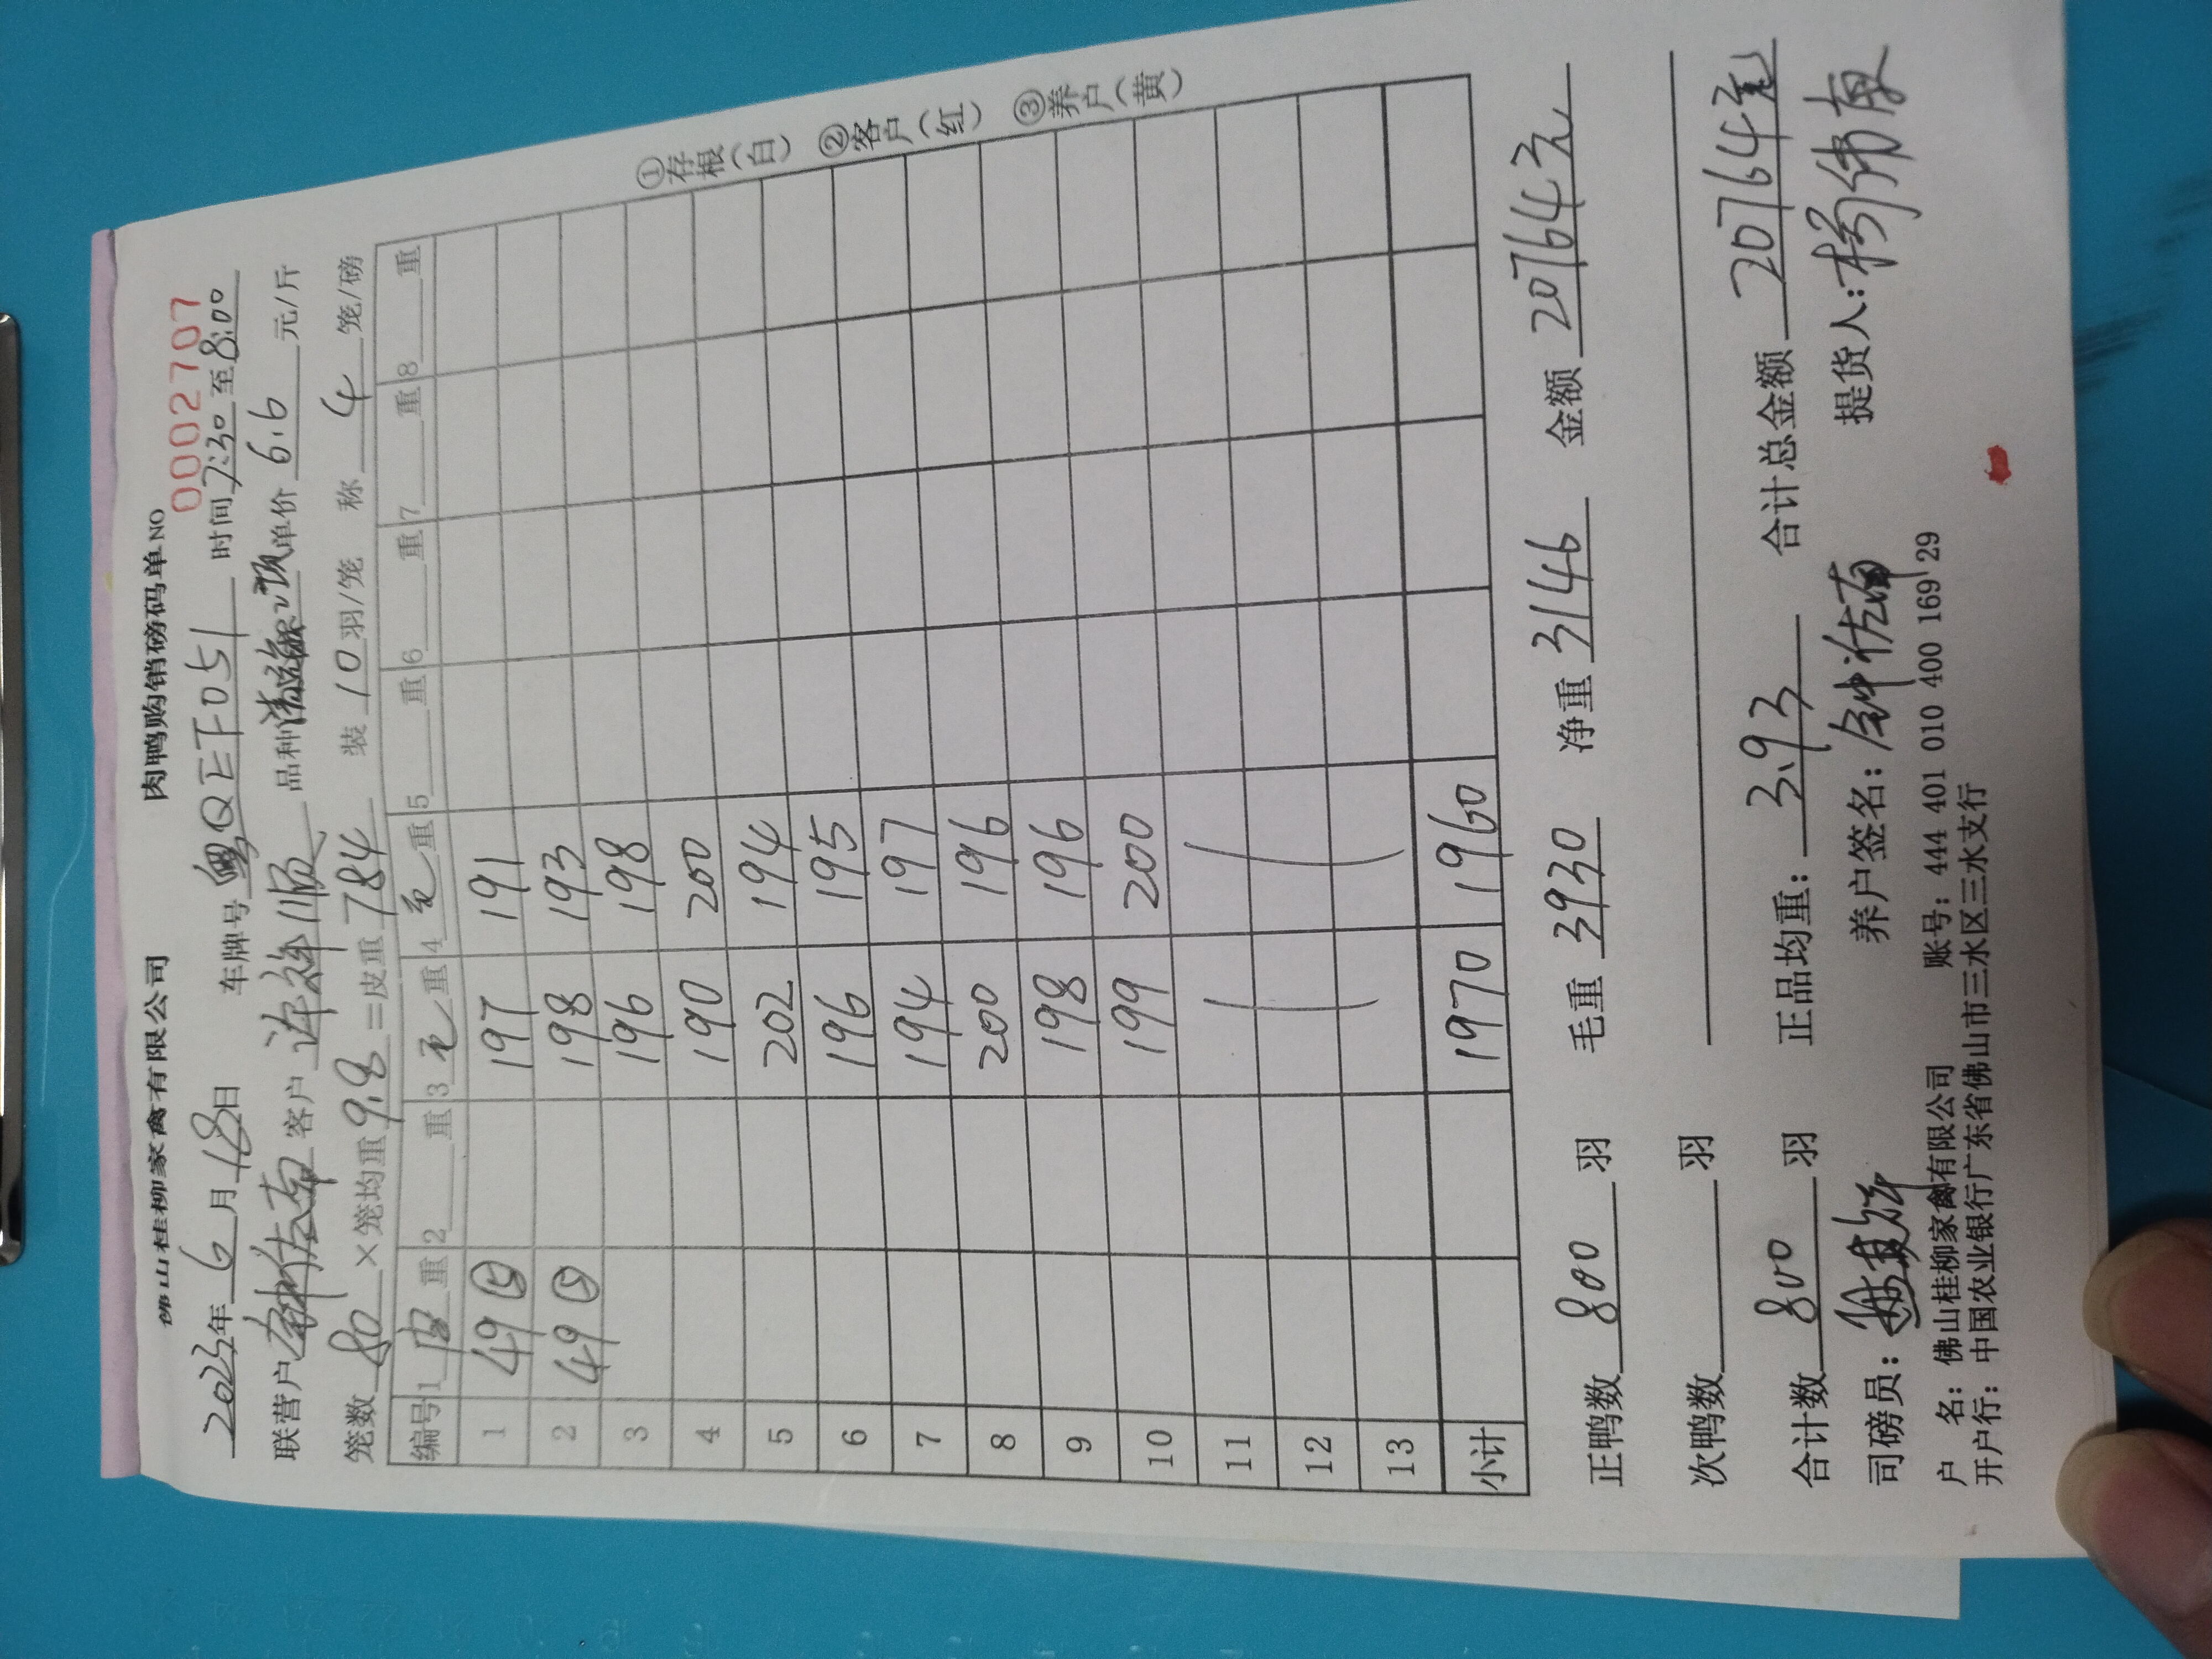 佛山桂柳家禽有限公司 肉鸭购销磅码单 NO 0002707
2023年6月18日 车牌号粤QEF051 时间7:30至8:00
联营户 客户许祥顺 品种 单价6.6元/斤
笼数80×笼均重9.8=皮重784 装10羽/笼 称4笼/磅
编号 1皮重 2重 3毛重 4毛重 5重 6重 7重 8重
1 49⑤ 197 191
2 49⑤ 198 193
3 196 198
4 190 200
5 202 194
6 196 195
7 194 197
8 200 196
9 198 196
10 199 200
11
12
13
小计 1970 1960
①存根(白) ②客户(红) ③养户(黄)
正鸭数800羽 毛重3930 净重3146 金额20764元
次鸭数 羽
合计数800羽 正品均重:3.93 合计总金额20764元
司磅员: 养户签名:钟佐南 提货人:杨伟有
户 名:佛山桂柳家禽有限公司 账号:444 401 010 400 169 29
开户行:中国农业银行广东省佛山市三水区三水支行